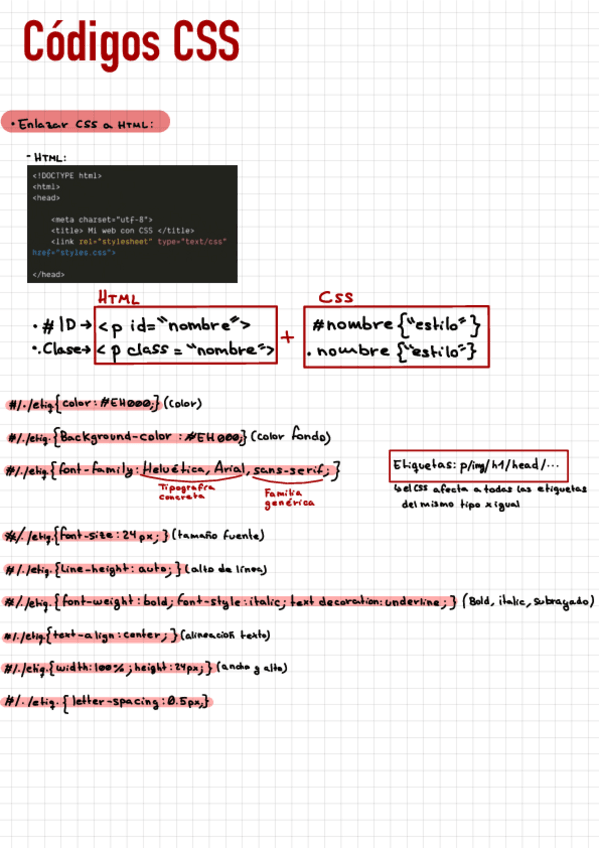 Códigos CSS
• Enlazar CSS a HTML:
- HTML:
<!DOCTYPE html>
<html>
<head>
<meta charset="utf-8">
<title> Mi web con CSS </title>
<link rel="stylesheet" type="text/css"
href="styles.css">
</head>
HTML
CSS
• # ID → <p id="nombre"> + #nombre {"estilo"}
•. Clase → <p class = "nombre"> . nombre {"estilo"}
#/./etiq.{color:#EH000;} (color)
#/./etiq.{Background-color:#EH000;} (color fondo)
#/./etiq.{font-family: Helvética, Arial, sans-serif;}
Tipografía
concreta
Familia
genérica
Etiquetas: p/img/h1/head/...
↳ el CSS afecta a todas las etiquetas
del mismo tipo x igual
#/./etiq.{font-size:24px;} (tamaño fuente)
#/./etiq.{line-height: auto;} (alto de línea)
#/./etiq.{font-weight:bold; font-style:italic; text decoration:underline;} (Bold, italic, subrayado)
#/./etiq.{text-align:center;} (alineación texto)
#/./etiq.{width:100%; height:24px;} (ancho y alto)
#/./etiq.{letter-spacing:0.5px;}